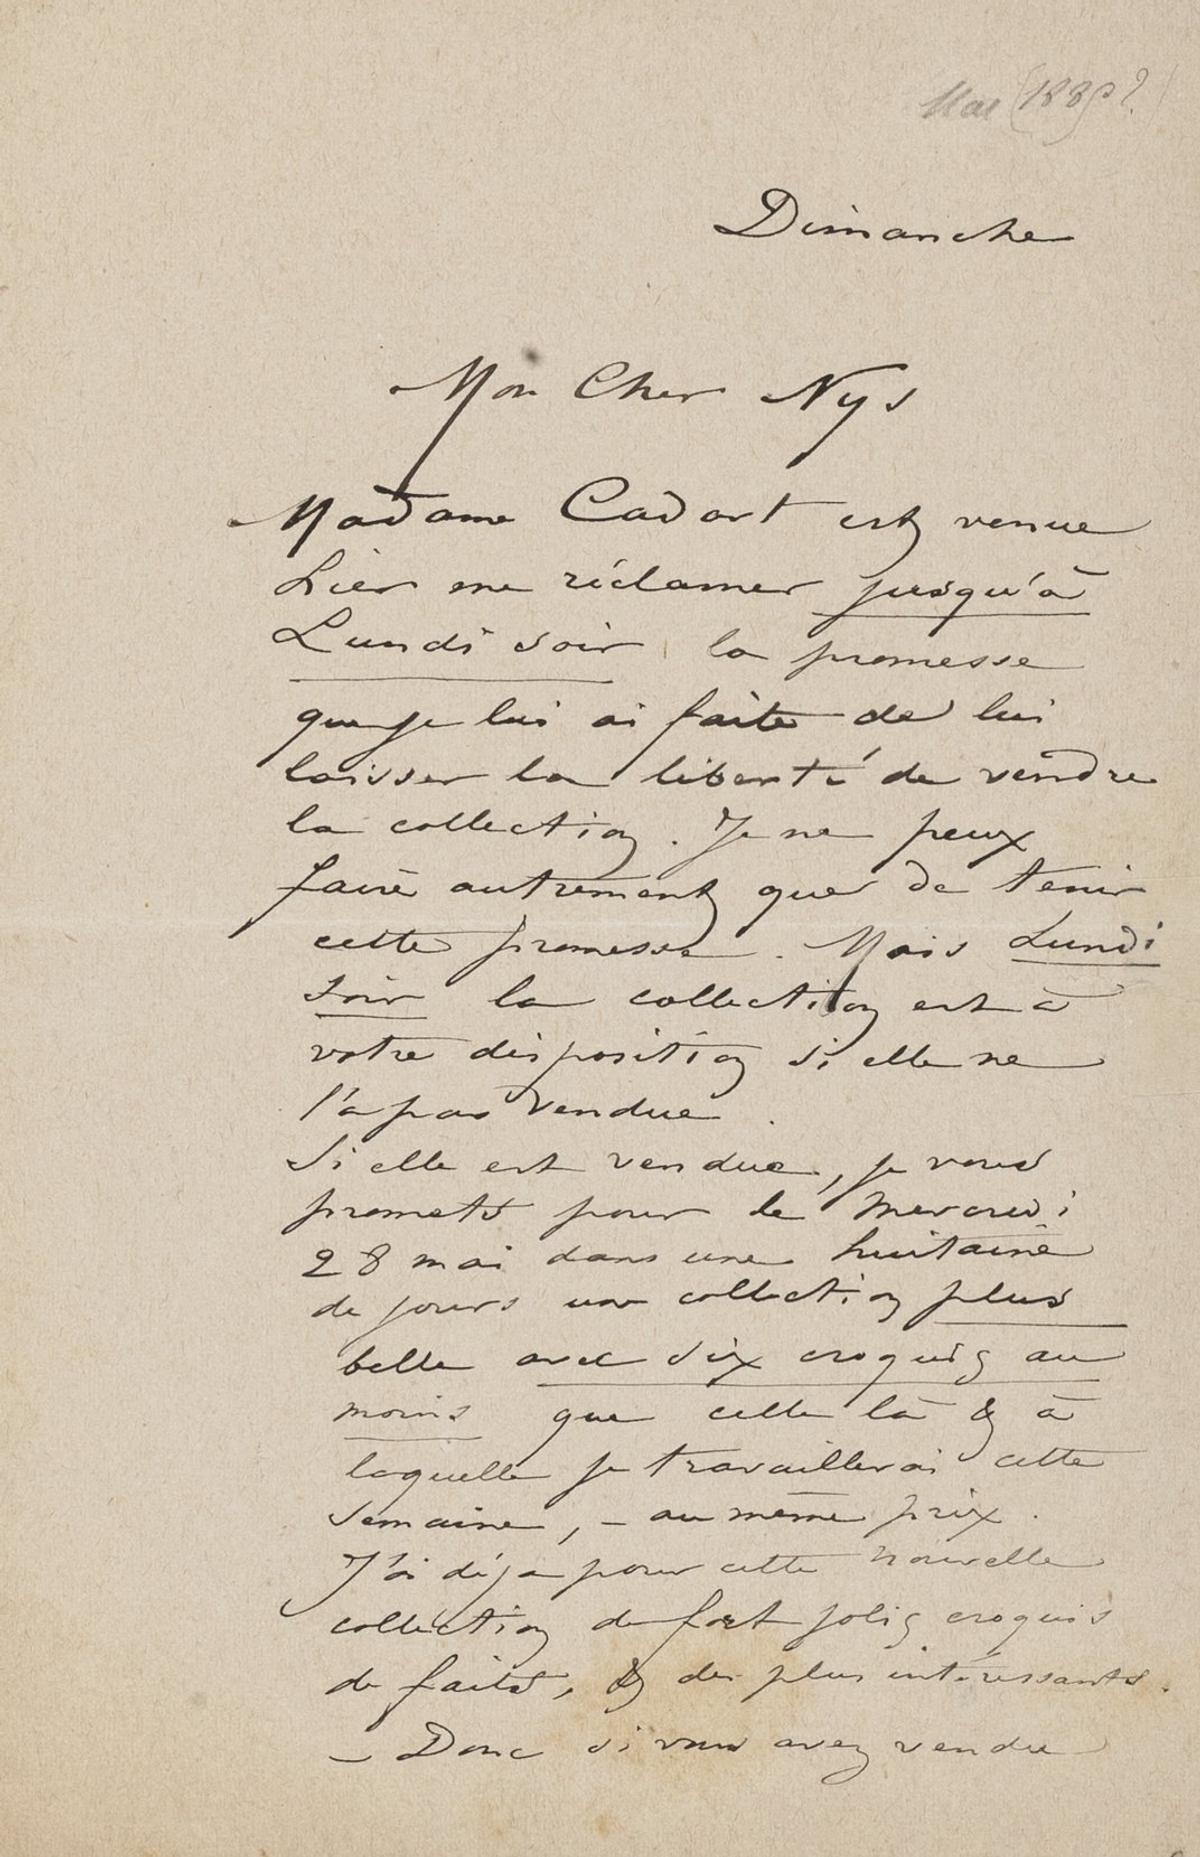 Mai (1880?)
Dimanche
Mon Cher Nys
Madame Cadart est venue
hier me réclamer jusqu'à
Lundi soir la promesse
que je lui ai faite de lui
laisser la liberté de vendre
la collection. Je ne peux
faire autrement que de tenir
cette promesse. Mais Lundi
soir la collection est à
votre disposition si elle ne
l'a pas vendue.
Si elle est vendue, je vous
promets pour le mercredi
28 mai dans une huitaine
de jours une collection plus
belle avec dix croquis au
moins que celle là & à
laquelle je travaillerai cette
semaine, – au même prix.
J'ai déja pour cette nouvelle
collection de fort jolis croquis
de faits, & des plus intéressants.
– Donc si vous avez vendu